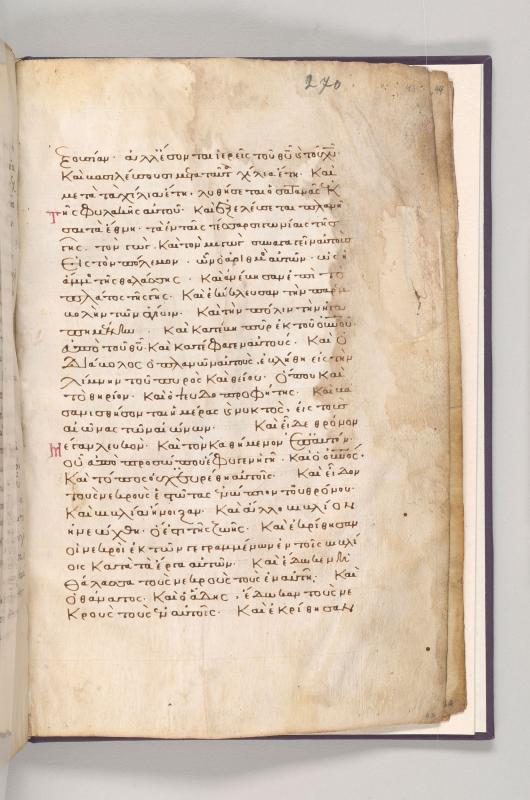 270
ξουσίαν· ἀλλ' ἔσονται ἱερεῖς τοῦ θ̅υ̅ κ̀ τοῦ χ̅υ̅·
Καὶ βασιλεύσουσι μετ' αὐτοῦ χίλια ἔτη. Καὶ
μετὰ τὰ χίλια ἔτη, λυθήσεται ὁ σατανᾶς ἐκ
τῆς φυλακῆς αὐτοῦ. Καὶ ἐξελεύσεται πλανῆ
σαι τὰ ἔθνη τὰ ἐν ταῖς τέσσαρσι γωνίαις τῆς
γῆς· τὸν γὼγ καὶ τὸν μαγὼγ συναγαγεῖν αὐτοὺς
εἰς τὸν πόλεμον· ὧν ὁ ἀριθμὸς αὐτῶν ὡς ἡ
ἄμμος τῆς θαλάσσης. Καὶ ἀνέβησαν ἐπὶ τὸ
πλάτος τῆς γῆς. Καὶ ἐκύκλευσαν τὴν παρεμ
βολὴν τῶν ἁγίων. Καὶ τὴν πόλιν τὴν ἠγα
πημένην. Καὶ κατέβη πῦρ ἐκ τοῦ ο̅υ̅ν̅ο̅υ̅
ἀπὸ τοῦ θ̅υ̅. Καὶ κατέφαγεν αὐτούς. Καὶ ὁ
Διάβολος ὁ πλανῶν αὐτοὺς, ἐβλήθη εἰς τὴν
λίμνην τοῦ πυρὸς Καὶ θείου. Ὅπου Καὶ
τὸ θηρίον. Καὶ ὁ ψευδοπροφήτης. Καὶ βα
σανισθήσονται ἡμέρας κ̀ νυκτὸς, εἰς τοὺς
αἰῶνας τῶν αἰώνων. Καὶ εἶδε θρόνον
μέγαν λευκόν. Καὶ τὸν Καθήμενον ἐπ' αὐτόν·
οὗ ἀπὸ προσώπου ἔφυγεν ἡ γῆ. Καὶ ὁ ο̅υ̅ν̅ο̅ς̅.
Καὶ τόπος οὐχ εὑρέθη αὐτοῖς. Καὶ εἶδον
τοὺς νεκροὺς ἑστῶτας ἐνώπιον τοῦ θρόνου.
Καὶ βιβλία ἤνοιξαν. Καὶ ἄλλο βιβλίον
ἠνεώχθη· ὅ ἐστι τῆς ζωῆς. Καὶ ἐκρίθησαν
οἱ νεκροὶ ἐκ τῶν γεγραμμένων ἐν τοῖς βιβλί
οις Κατὰ τὰ ἔργα αὐτῶν. Καὶ ἔδωκεν ἡ
θάλασσα τοὺς νεκροὺς τοὺς ἐν αὐτῇ. Καὶ
ὁ θάνατος. Καὶ ὁ ἅδης, ἔδωκαν τοὺς νε
Κροὺς τοὺς ἐν αὐτοῖς. Καὶ ἐκρίθησαν